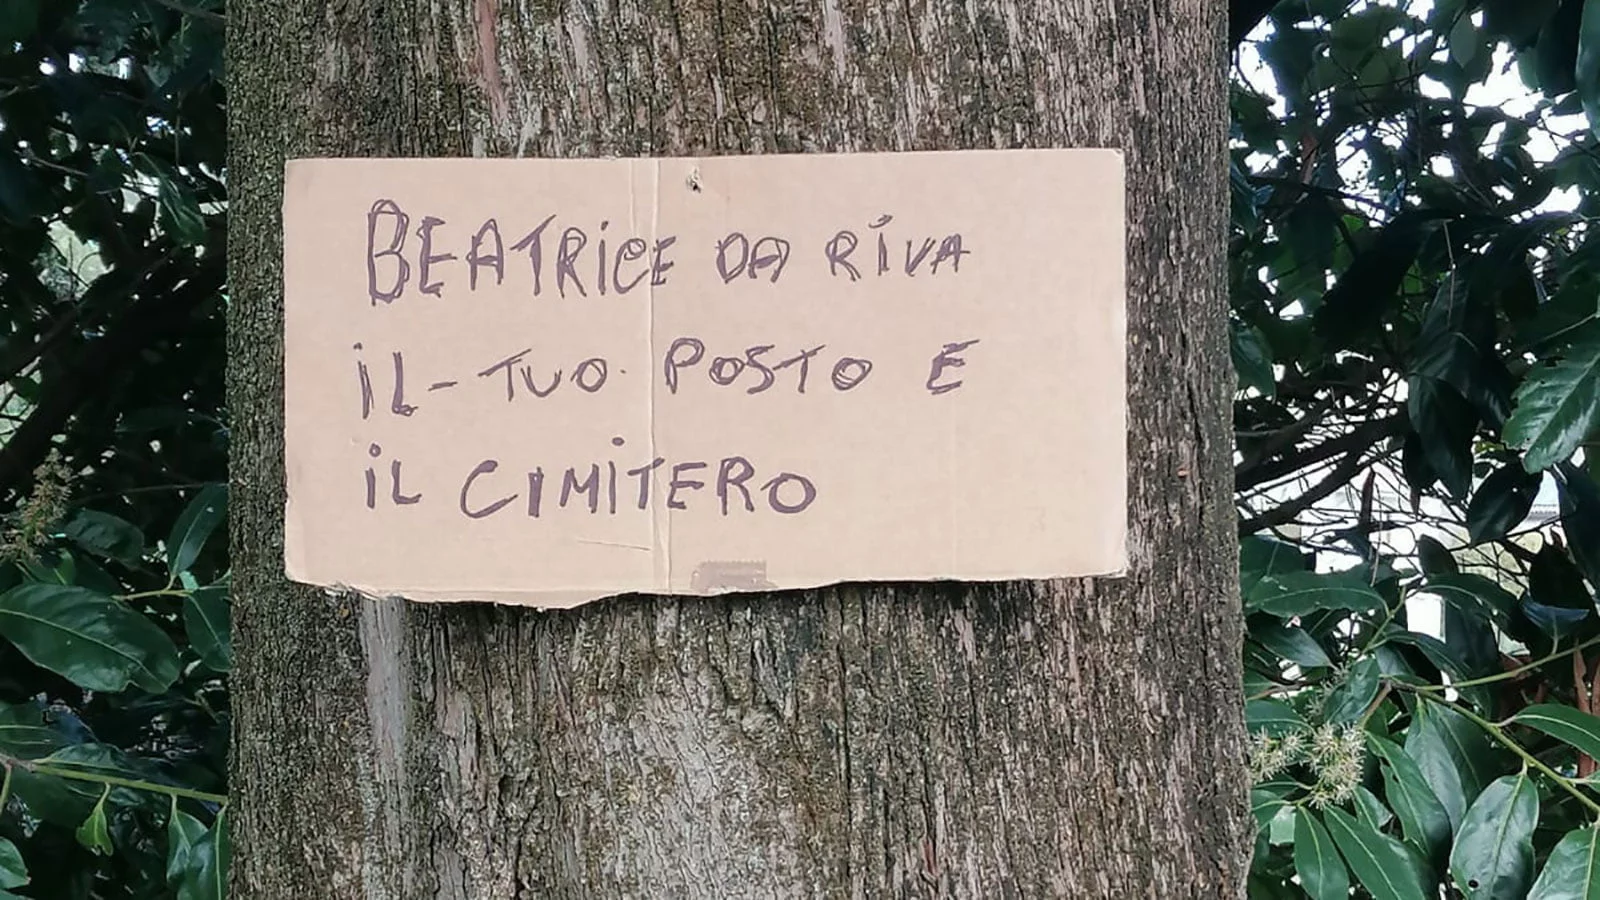 BEATRICE DA RIVA
IL - TUO POSTO E
IL CIMITERO